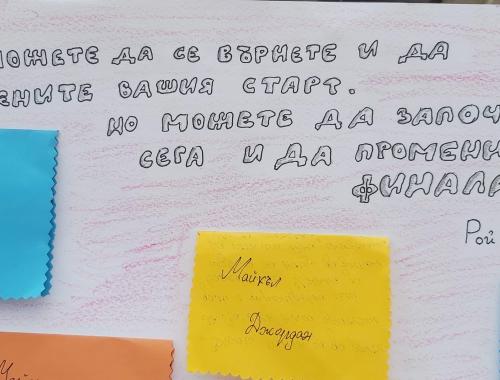 МОЖЕТЕ ДА СЕ ВЪРНЕТЕ И ДА
ЕНИТЕ ВАШИЯ СТАРТ.
НО МОЖЕТЕ ДА ЗАПОЧ
СЕГА И ДА ПРОМЕНИ
ФИНАЛА
Рой
Майкъл
Джордан